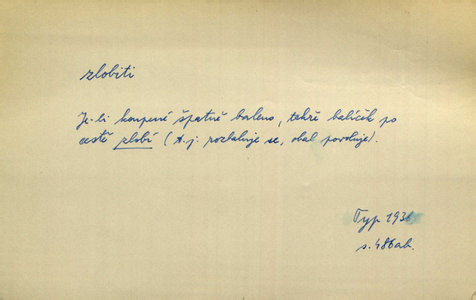 zlobiti
Je-li koupené špatně baleno, takže balíček po
cestě zlobí (t. j. roztahuje se, obal povoluje).
Typ 1936
s. 486ab.